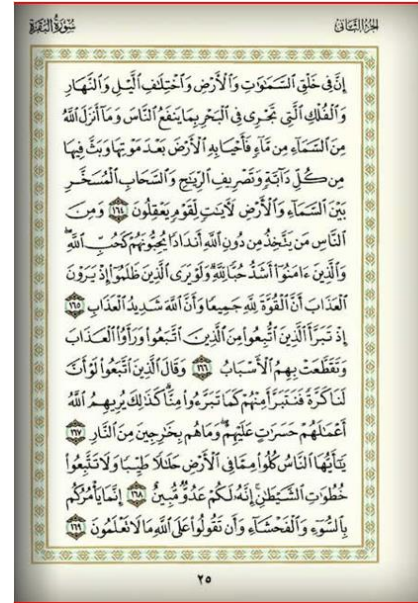 الجزء الثاني
سورة البقرة
إِنَّ فِي خَلْقِ السَّمَٰوَٰتِ وَالْأَرْضِ وَاخْتِلَٰفِ الَّيْلِ وَالنَّهَارِ
وَالْفُلْكِ الَّتِي تَجْرِي فِي الْبَحْرِ بِمَا يَنفَعُ النَّاسَ وَمَآ أَنزَلَ اللَّهُ
مِنَ السَّمَآءِ مِن مَّآءٍ فَأَحْيَا بِهِ الْأَرْضَ بَعْدَ مَوْتِهَا وَبَثَّ فِيهَا
مِن كُلِّ دَآبَّةٍ وَتَصْرِيفِ الرِّيَٰحِ وَالسَّحَابِ الْمُسَخَّرِ
بَيْنَ السَّمَآءِ وَالْأَرْضِ لَءَايَٰتٍ لِّقَوْمٍ يَعْقِلُونَ ١٦٤ وَمِنَ
النَّاسِ مَن يَتَّخِذُ مِن دُونِ اللَّهِ أَندَادًا يُحِبُّونَهُمْ كَحُبِّ اللَّهِ ۖ
وَالَّذِينَ ءَامَنُوٓا أَشَدُّ حُبًّا لِّلَّهِ ۗ وَلَوْ يَرَى الَّذِينَ ظَلَمُوٓا إِذْ يَرَوْنَ
الْعَذَابَ أَنَّ الْقُوَّةَ لِلَّهِ جَمِيعًا وَأَنَّ اللَّهَ شَدِيدُ الْعَذَابِ ١٦٥
إِذْ تَبَرَّأَ الَّذِينَ اتُّبِعُوا مِنَ الَّذِينَ اتَّبَعُوا وَرَأَوُا الْعَذَابَ
وَتَقَطَّعَتْ بِهِمُ الْأَسْبَابُ ١٦٦ وَقَالَ الَّذِينَ اتَّبَعُوا لَوْ أَنَّ
لَنَا كَرَّةً فَنَتَبَرَّأَ مِنْهُمْ كَمَا تَبَرَّءُوا مِنَّا ۗ كَذَٰلِكَ يُرِيهِمُ اللَّهُ
أَعْمَٰلَهُمْ حَسَرَٰتٍ عَلَيْهِمْ ۖ وَمَا هُم بِخَٰرِجِينَ مِنَ النَّارِ ١٦٧
يَٰٓأَيُّهَا النَّاسُ كُلُوا مِمَّا فِي الْأَرْضِ حَلَٰلًا طَيِّبًا وَلَا تَتَّبِعُوا
خُطُوَٰتِ الشَّيْطَٰنِ ۚ إِنَّهُ لَكُمْ عَدُوٌّ مُّبِينٌ ١٦٨ إِنَّمَا يَأْمُرُكُم
بِالسُّوٓءِ وَالْفَحْشَآءِ وَأَن تَقُولُوا عَلَى اللَّهِ مَا لَا تَعْلَمُونَ ١٦٩
٢٥